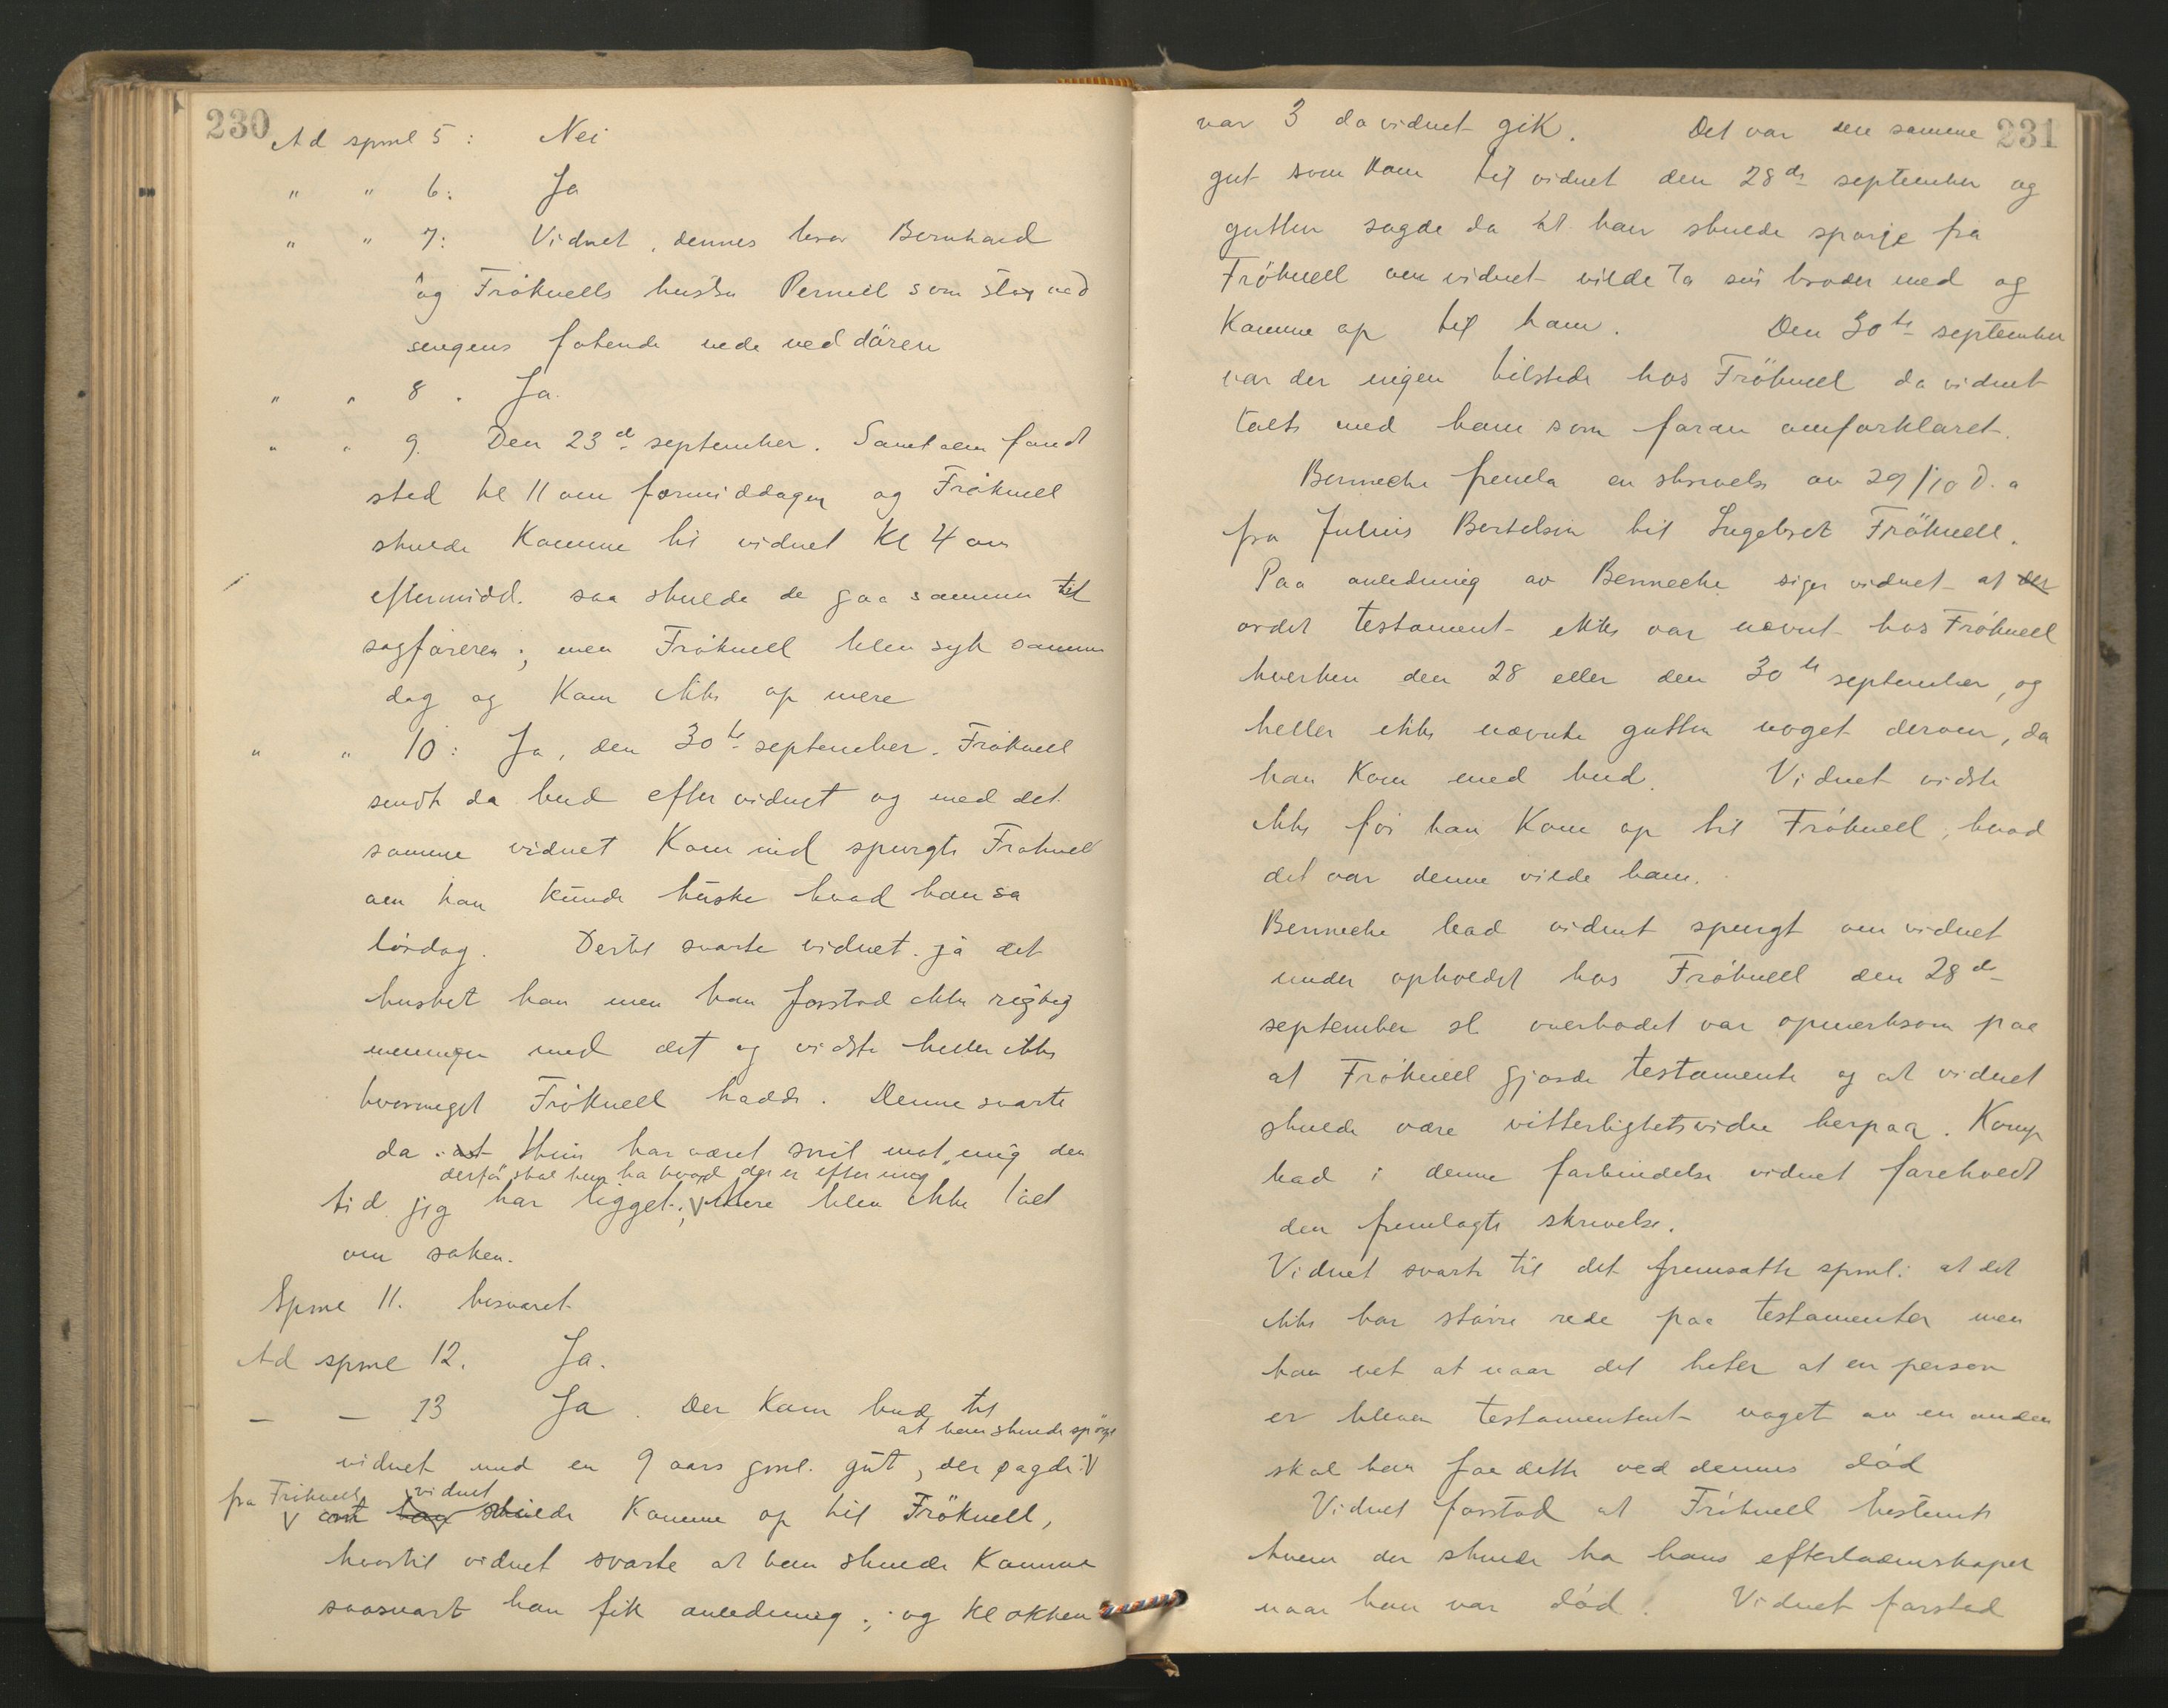 230
Ad spml 5: Nei
" " 6: Ja
" " 7: Vidnet, dennes bror Bernhard
og Fröknells hustru Pernil som stog ved
sengens fotende nede ved dören
" " 8. Ja.
" " 9. Den 23de september. Samtalen fandt
sted kl 11 om formiddagen og Fröknell
skulde komme til vidnet Kl 4 om
eftermidd. saa skulde de gaa sammen til
sagföreren; men Fröknell blev syk samme
dag og kom ikke op mere
" " 10: Ja, den 30te september. Fröknell
sendte da bud efter vidnet og med det
samme vidnet kom ind spurgte Fröknell
om han kunde huske hvad han sa
lördag. Dertil svarte vidnet. ja det
husket han men han forstod ikke rigtig
meningen med det og vidste heller ikke
hvormeget Fröknell hadde. Denne svarte
da at har været snil mot mig den
derfor skal ha hvad der er efter mig
tid jeg har ligget; mere blev ikke talt
om saken.
Spml 11. besvaret
Ad spml 12. Ja.
— — 13 Ja. Der kom bud til
at han skulde spörge
vidnet med en 9 aars gml. gut, der sagde: V
fra Fröknell vidnet
V om han skulde komme op til Fröknell,
hvortil vidnet svarte at han skulde komme
saasnart han fik anledning; og klokken
231
var 3 da vidnet gik. Det var den samme
gut som kom til vidnet den 28de september og
gutten sagde da at han skulde spörge fra
Fröknell om vidnet vilde ta sin broder med og
komme op til ham. Den 30te september
var der ingen tilstede hos Fröknell da vidnet
talte med ham som foran omforklaret.
Bennecke fremla en skrivelse av 29/10 d.a
fra Julius Bertelsen til Ingebret Fröknell.
Paa anledning av Bennecke siger vidnet at der
ordet testament ikke var nævnt hos Fröknell
hverken den 28 eller den 30te september, og
heller ikke nævnte gutten noget derom, da
han kom med bud. Vidnet vidste
ikke för han kom op til Fröknell, hvad
det var denne vilde ham.
Bennecke bad vidnet spurgt om vidnet
under opholdet hos Fröknell den 28de
september sl overhodet var opmerksom paa
at Fröknell gjorde testamente og at vidnet
skulde være vitterlighetsvidne herpaa. Komp
bad i denne forbindelse vidnet foreholdt
den fremlagte skrivelse.
Vidnet svarte til det fremsatte spml: at det
ikke har större rede paa testamenter men
han vet at naar det heter at en person
er bleven testamentert noget av en anden
skal han faa dette ved dennes död
Vidnet forstod at Fröknell bestemte
hvem der skulde ha hans efterladenskaper
naar han var död! Vidnet forstod